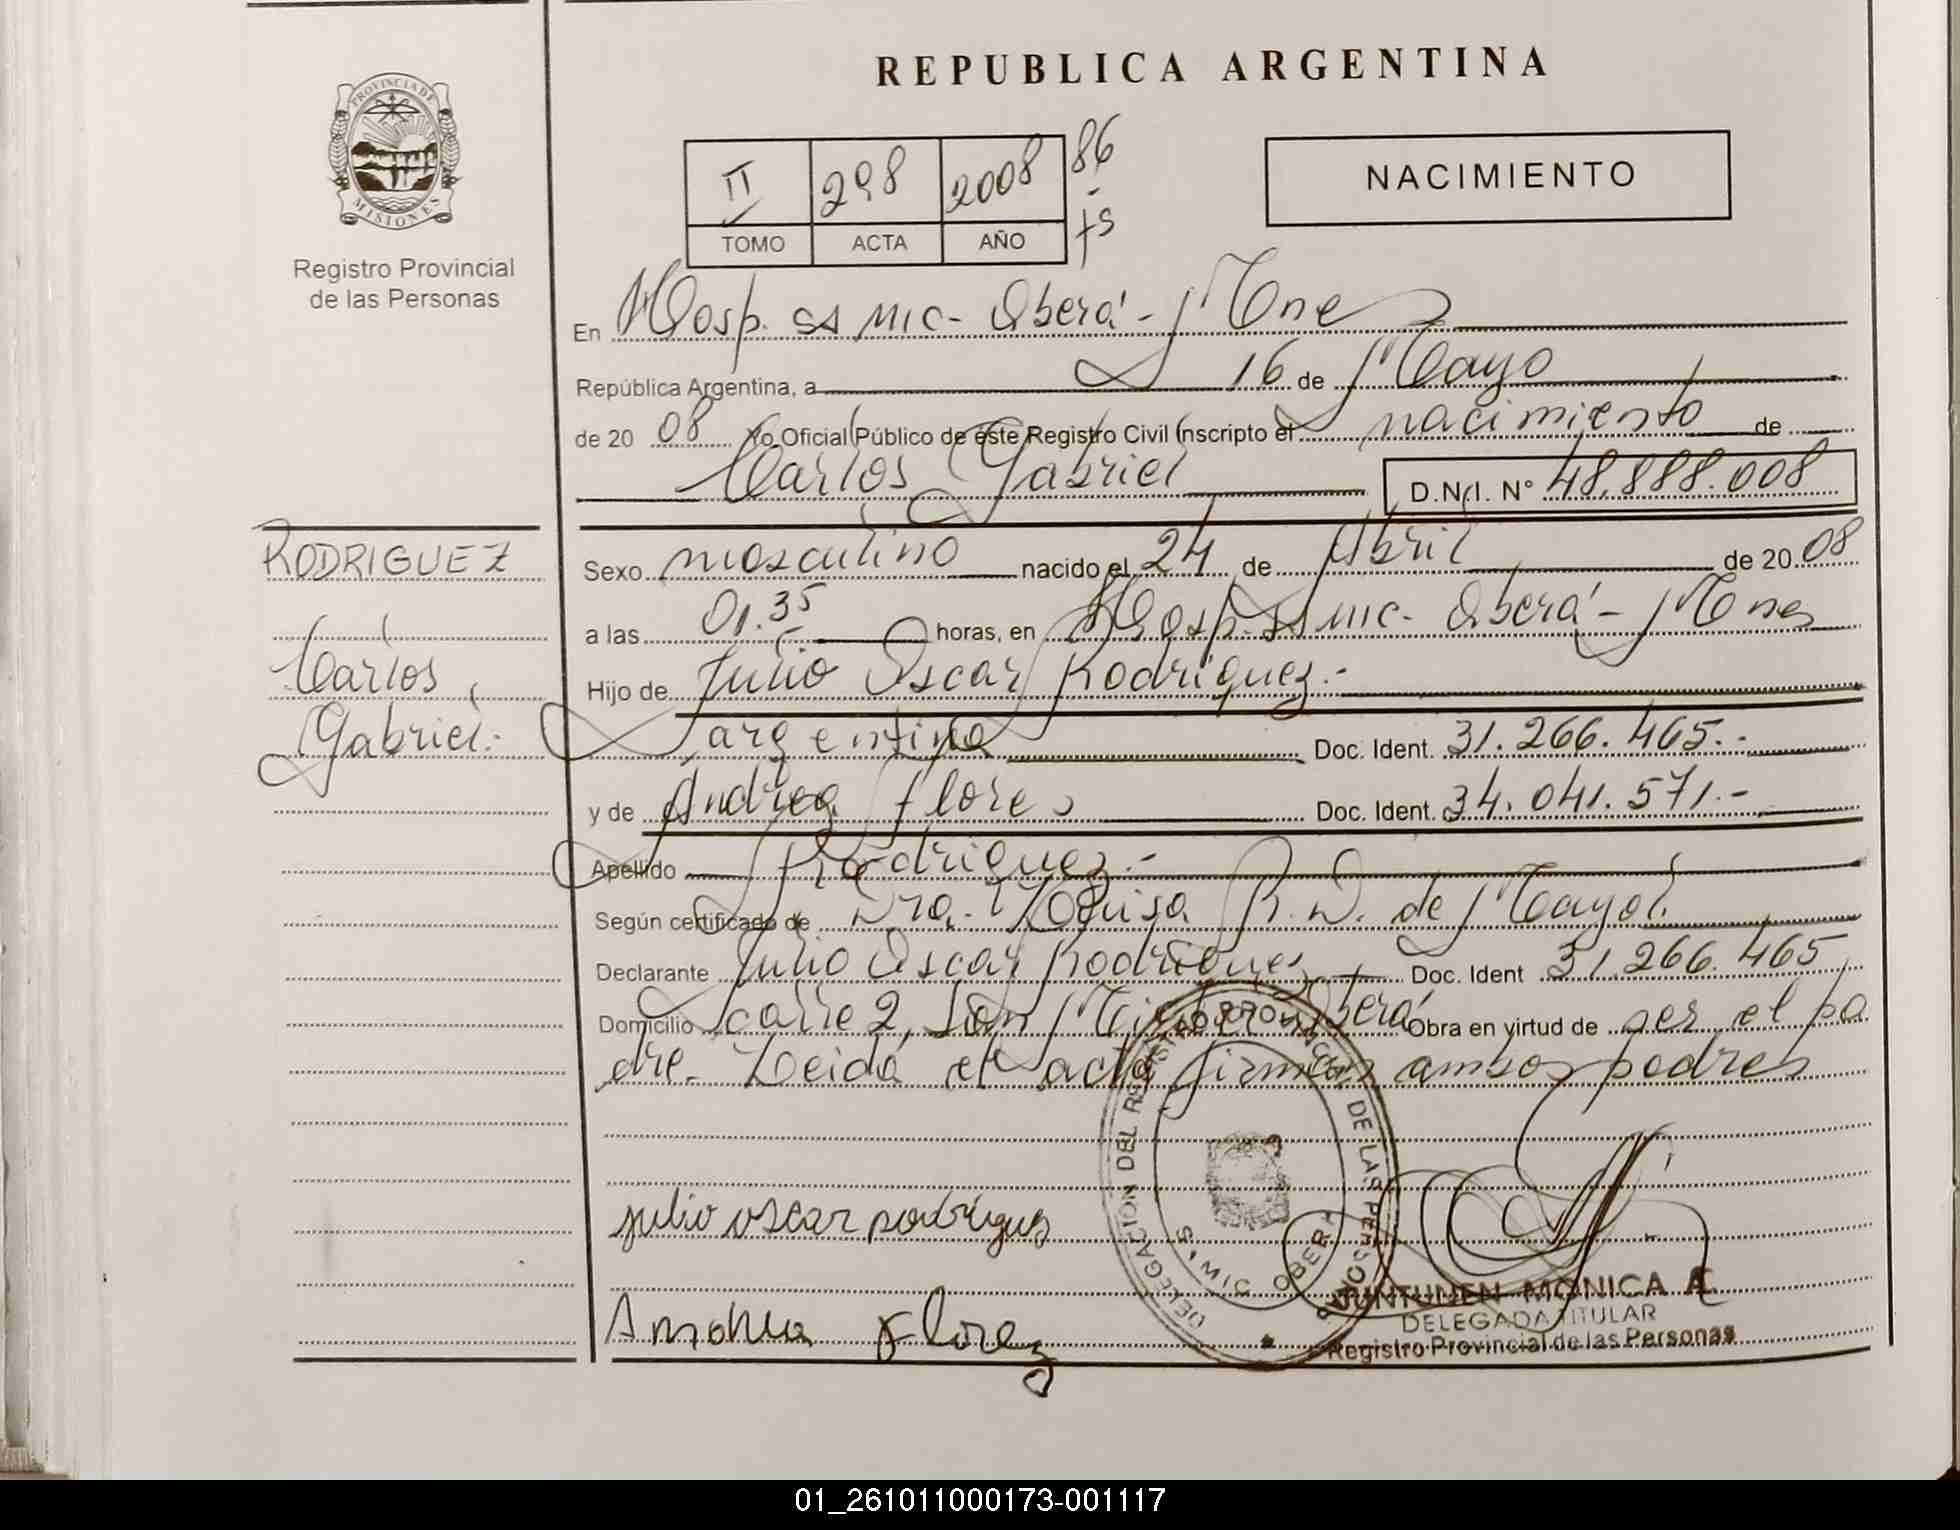 PROVINCIA DE
MISIONES
Registro Provincial
de las Personas
REPUBLICA ARGENTINA
II 298 2008 86
TOMO ACTA AÑO fs
NACIMIENTO
En Hosp. SS Mic - Oberá - Mnes
República Argentina, a 16 de Mayo
de 20 08 Yo Oficial Público de este Registro Civil Inscripto el nacimiento de
Carlos Gabriel D.N.I. N° 48.888.008
RODRIGUEZ
Carlos
Gabriel.-
Sexo masculino nacido el 24 de Abril de 20 08
a las 01.35 horas, en Hosp. SS Mic - Oberá - Mnes
Hijo de Julio Oscar Rodriguez.-
argentina Doc. Ident. 31.266.465.-
y de Andrea Flores Doc. Ident. 34.041.571.-
Apellido Rodriguez.-
Según certificado de Dra. R. D. de
Declarante Julio Oscar Rodriguez Doc. Ident 31.266.465
Domicilio calle 2, San Miguel Oberá Obra en virtud de ser el pa
dre. Leida el acta firman ambos padres
julio oscar rodriguez
Flores
DELEGACION DEL REGISTRO PROVINCIAL DE LAS PERSONAS
S. MIC OBERA
JUNTUNEN MONICA A
DELEGADA TITULAR
Registro Provincial de las Personas
01_261011000173-001117